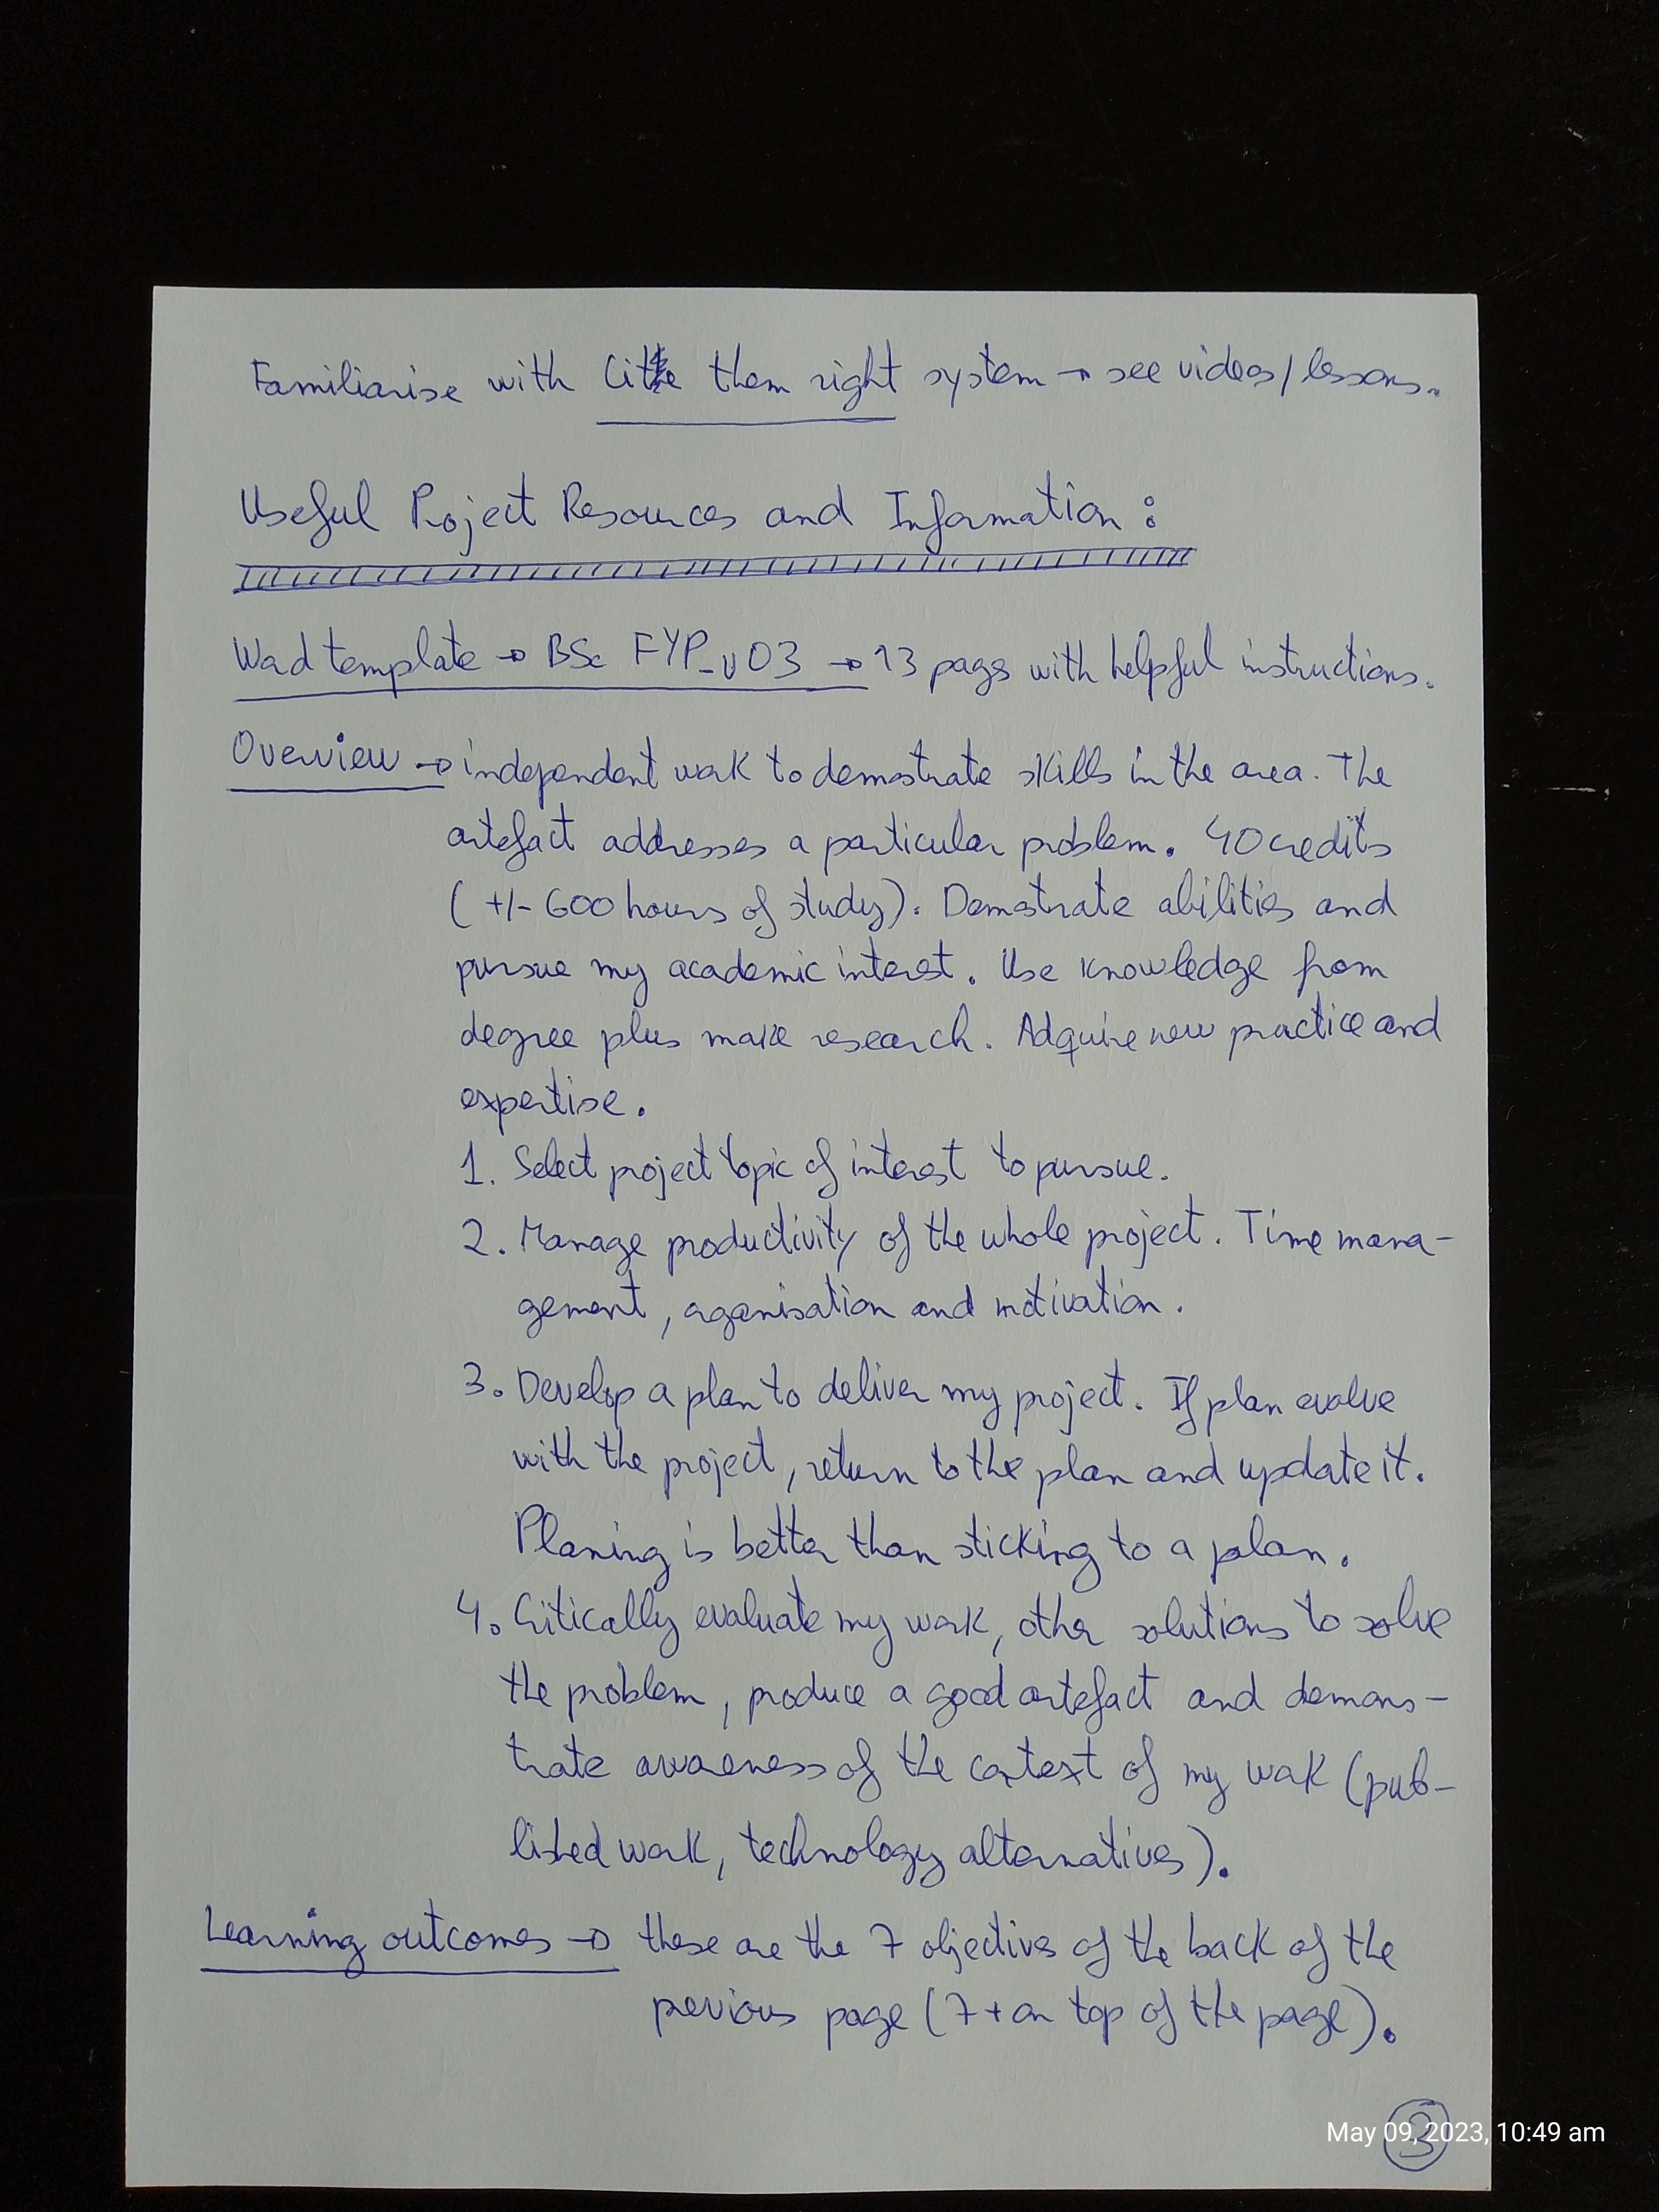 Familiarise with Cite them right system → see videos/lessons.
Useful Project Resources and Information:
Word template → BSc FYP_v03 → 13 pages with helpful instructions.
Overview → independent work to demostrate skills in the area. The
artefact addresses a particular problem. 40 credits
(+/- 600 hours of study). Demostrate abilities and
pursue my academic interest. Use knowledge from
degree plus make research. Adquire new practice and
expertise.
1. Select project topic of interest to pursue.
2. Manage productivity of the whole project. Time mana-
gement, organisation and motivation.
3. Develop a plan to deliver my project. If plan evolve
with the project, return to the plan and update it.
Planing is better than sticking to a plan.
4. Critically evaluate my work, other solutions to solve
the problem, produce a good artefact and demons-
trate awareness of the context of my work (pub-
lished work, technology alternatives).
Learning outcomes → these are the 7 objectives of the back of the
previous page (7 + on top of the page).
3
May 09, 2023, 10:49 am